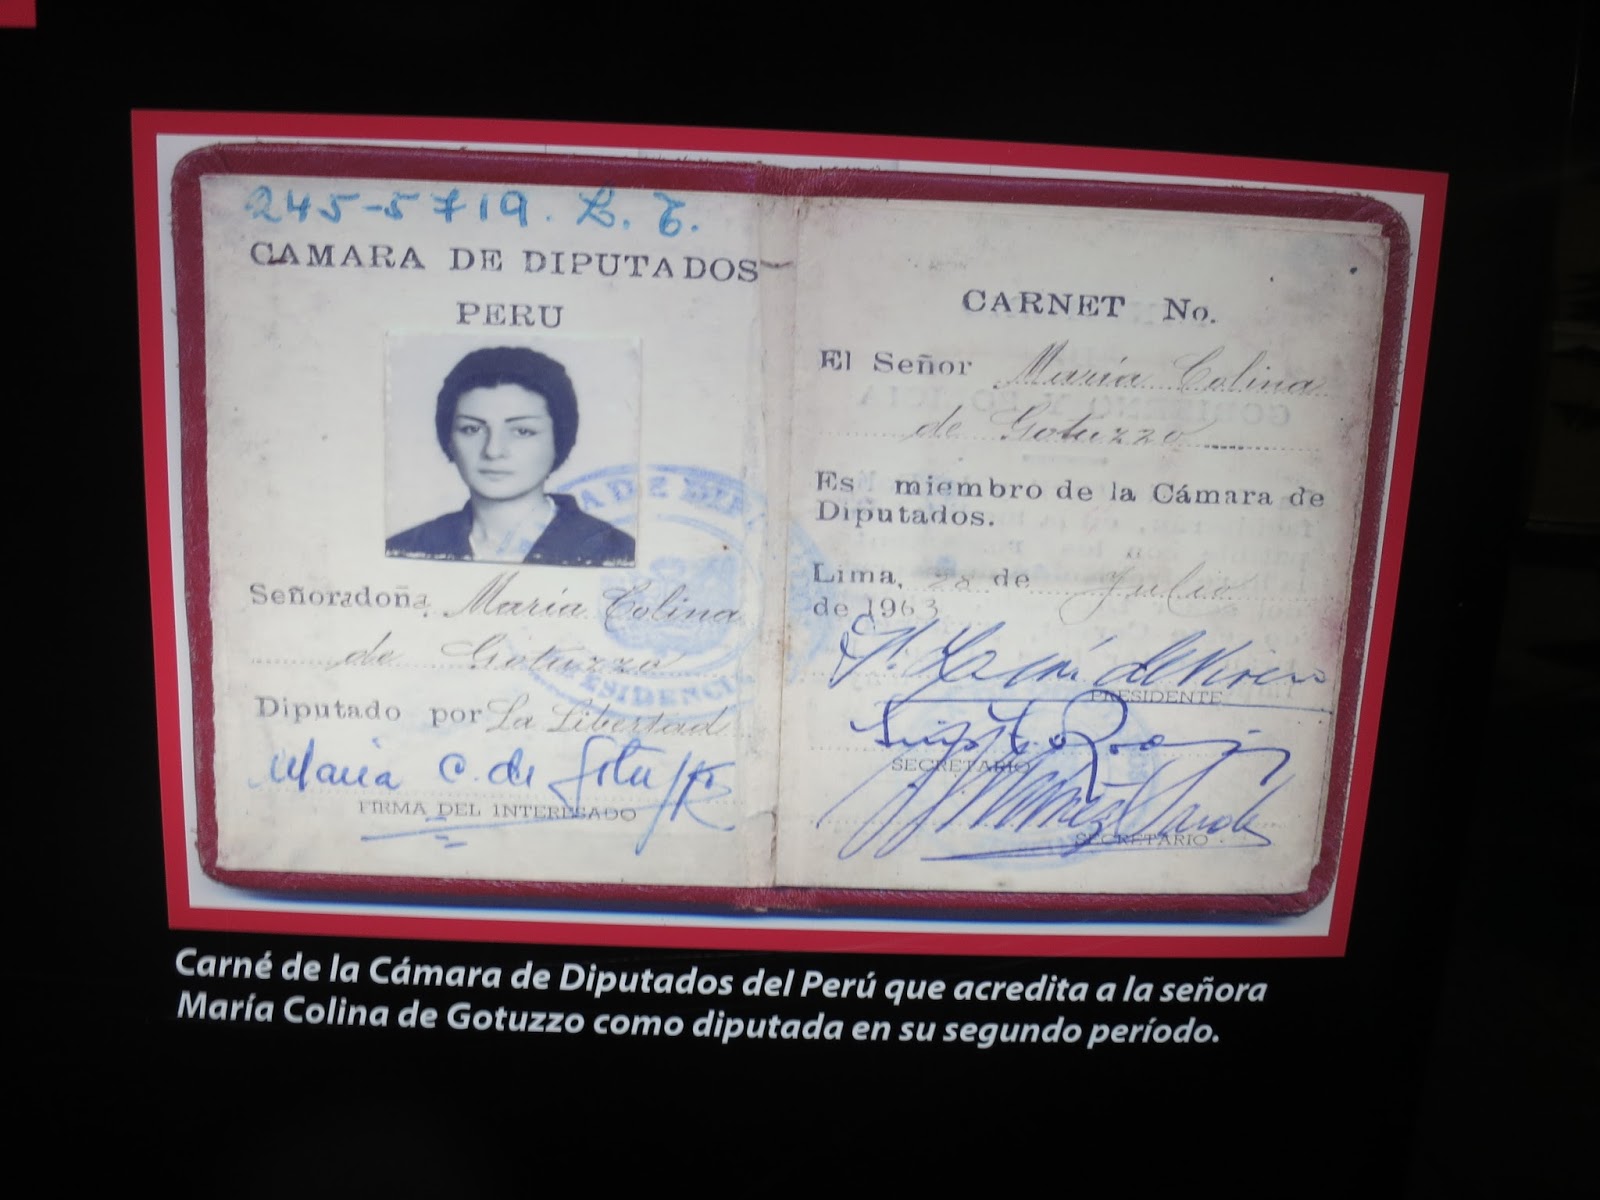 245-5719. L. T.
CAMARA DE DIPUTADOS
PERU
Señoradoña, María Colina
de Gotuzzo
Diputado por La Libertad
María C. de Gotuzzo
FIRMA DEL INTERESADO
CARNET No.
El Señor María Colina
de Gotuzzo
Es miembro de la Cámara de
Diputados.
Lima, 28 de Julio
de 1963
PRESIDENTE
SECRETARIO
SECRETARIO
Carné de la Cámara de Diputados del Perú que acredita a la señora
María Colina de Gotuzzo como diputada en su segundo período.